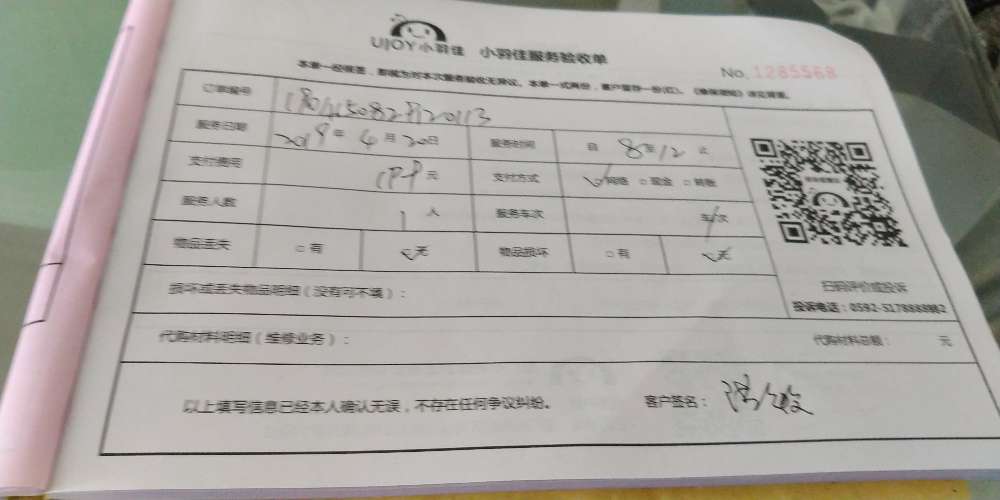 UJOY小羽佳 小羽佳服务验收单
本单一经签署,即视为对本次服务验收无异议。本单一式两份,客户留存一份(红)。
No. 1285568
订单编号
服务日期 2019年4月20日 服务时间 自 8 至 12 止
支付费用 元 支付方式 网络 □ 现金 □ 转账
服务人数 1 人 服务车次 车/次
物品丢失 □ 有 无 物品损坏 □ 有 无
扫码评价或投诉
损坏或丢失物品明细(没有可不填):
投诉电话:0592-5178888转2
代购材料明细(维修业务): 代购材料总额: 元
以上填写信息已经本人确认无误,不存在任何争议纠纷。 客户签名: